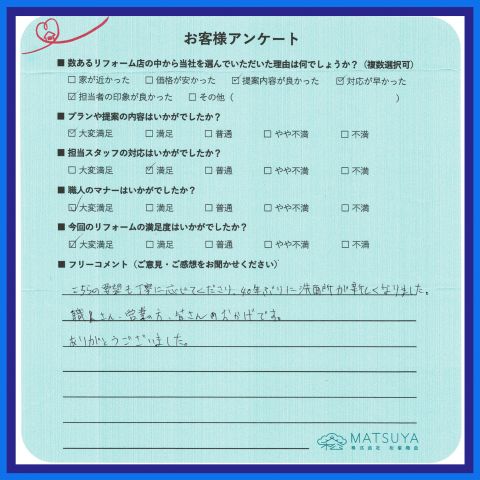 お客様アンケート
■ 数あるリフォーム店の中から当社を選んでいただいた理由は何でしょうか?（複数選択可）
□ 家が近かった □ 価格が安かった ☑ 提案内容が良かった ☑ 対応が早かった
☑ 担当者の印象が良かった □ その他（ ）
■ プランや提案の内容はいかがでしたか?
☑ 大変満足 □ 満足 □ 普通 □ やや不満 □ 不満
■ 担当スタッフの対応はいかがでしたか?
□ 大変満足 ☑ 満足 □ 普通 □ やや不満 □ 不満
■ 職人のマナーはいかがでしたか?
☑ 大変満足 □ 満足 □ 普通 □ やや不満 □ 不満
■ 今回のリフォームの満足度はいかがでしたか?
☑ 大変満足 □ 満足 □ 普通 □ やや不満 □ 不満
■ フリーコメント（ご意見・ご感想をお聞かせください）
こちらの要望も丁寧に応じてくださり、40年ぶりに洗面所が新しくなりました。
職人さん、営業の方、皆さんのおかげです。
ありがとうございました。
MATSUYA
株式会社